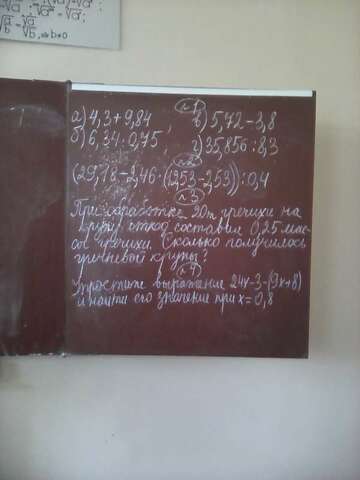 √a
n1
а) 4,3+9,84 ; в) 5,72-3,8
б) 6,34·0,75 г) 35,856:8,3
n2
(29,18-2,46·(12,53-2,53)):0,4
n3
При обработке 20т гречихи на
крупу отход составил 0,25 мас-
сы гречихи. Сколько получилось
гречневой крупы?
n4
Упростите выражение 24x-3-(9x+8)
и найти его значение при x=0,8